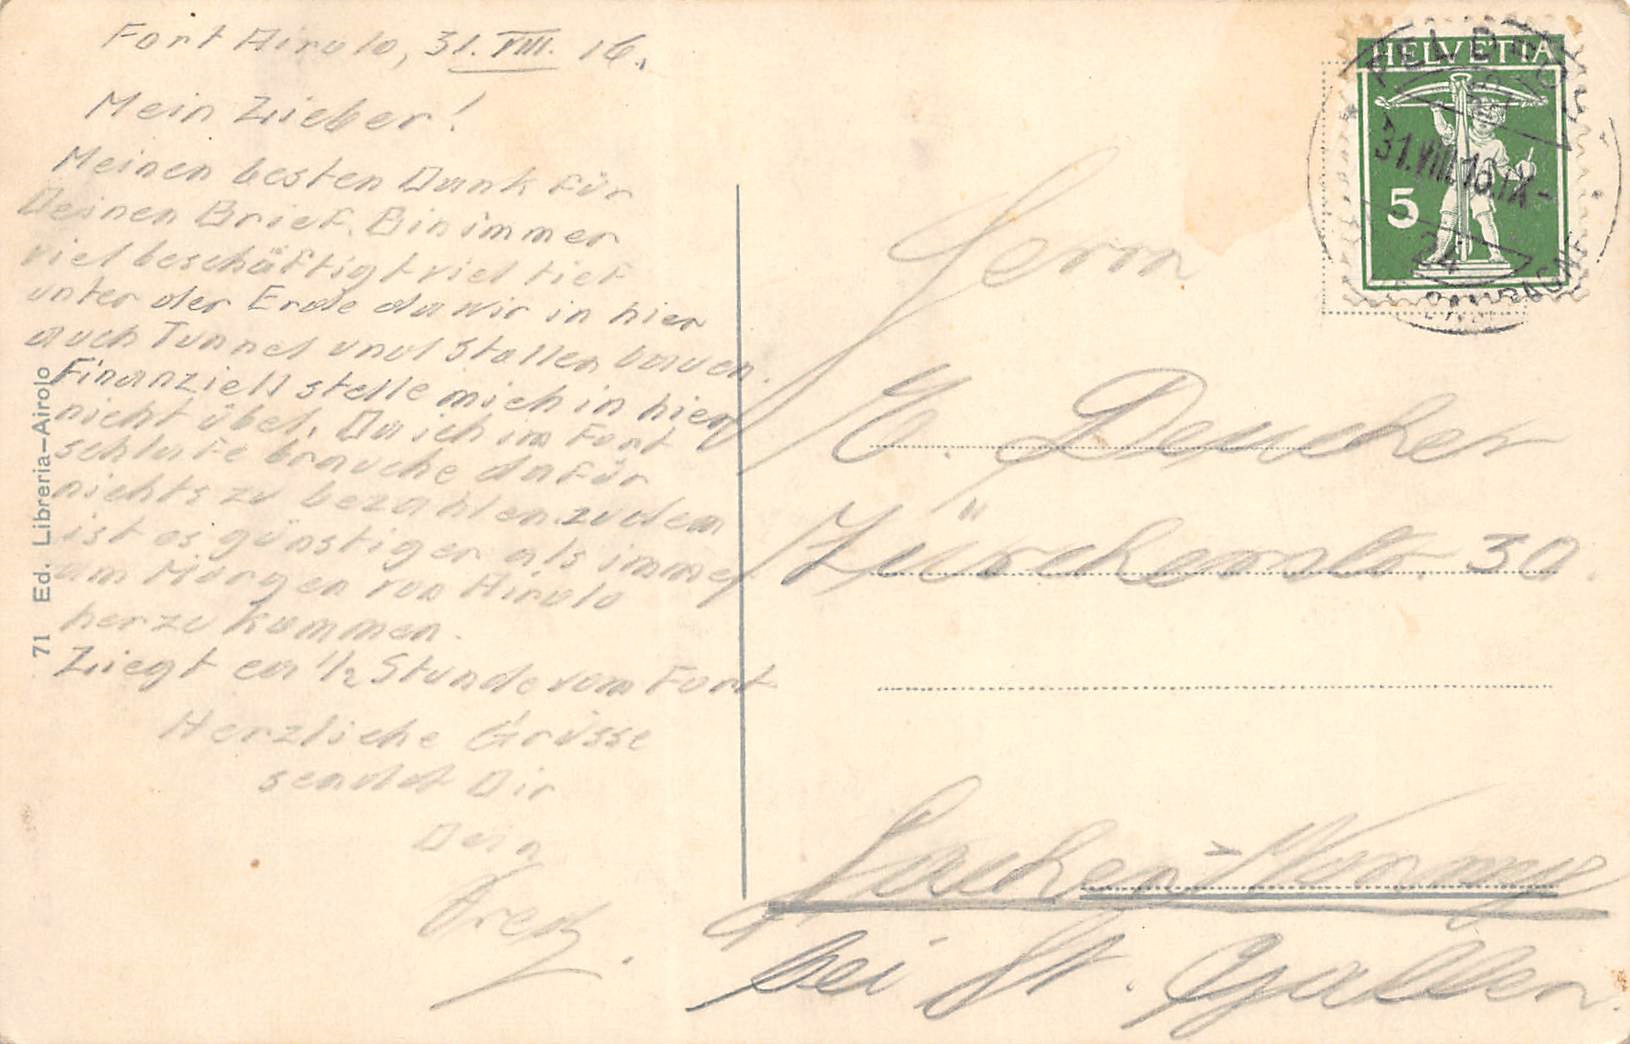 Fort Airolo, 31. VIII. 16.
Mein Lieber!
Meinen besten Dank für
Deinen Brief. Bin immer
viel beschäftigt viel tief
unter der Erde da wir in hier
auch Tunnel und Stallen bauen.
Finanziell stelle mich in hier
nicht übel. Da ich im Fort
schlafe brauche dafür
nichts zu bezahlen. zudem
ist es günstiger als immer
am Morgen von Airolo
her zu kommen.
Liegt ca 1/2 Stunde vom Fort
Herzliche Grüsse
sendet Dir
Dein
71 Ed. Libreria—Airolo
HELVETIA
5
31.VIII.16.IX-
24
Herrn
E. Deucher
Zürcherstr. 30.
Lachen-Vonwyl
bei St. Gallen.